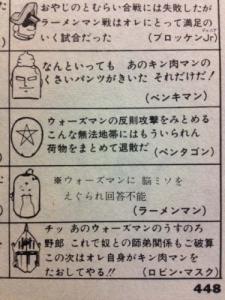 おやじのとむらい合戦には失敗したが
ラーメンマン戦はオレにとって満足の
いく試合だった (ブロッケンJr)
ジュニア
なんといっても あのキン肉マンの
くさいパンツがきいた それだけだ!
(ベンキマン)
ウォーズマンの反則攻撃をみとめる
こんな無法地帯にはもういられん
荷物をまとめて退散だ (ペンタゴン)
※ウォーズマンに 脳ミソを
えぐられ回答不能
(ラーメンマン)
チッ あのウォーズマンのうすのろ
野郎 これで奴との師弟関係もご破算
この次はオレ自身がキン肉マンを
たおしてやる!! (ロビン・マスク)
448